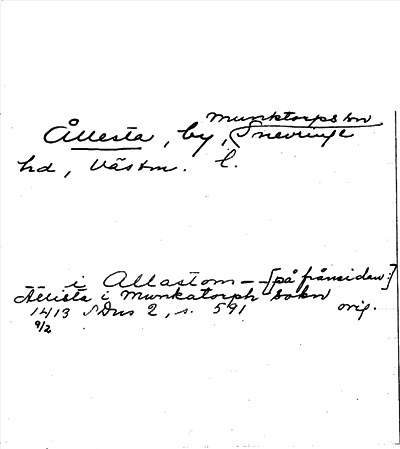 Munktorps sn
Ållesta, by, Snevringe
hd, Västm. l.
i Allastom - [på frånsidan:]
Ållista i Munkatorph sokn
1413 SDns 2, s. 591 orig.
9/2